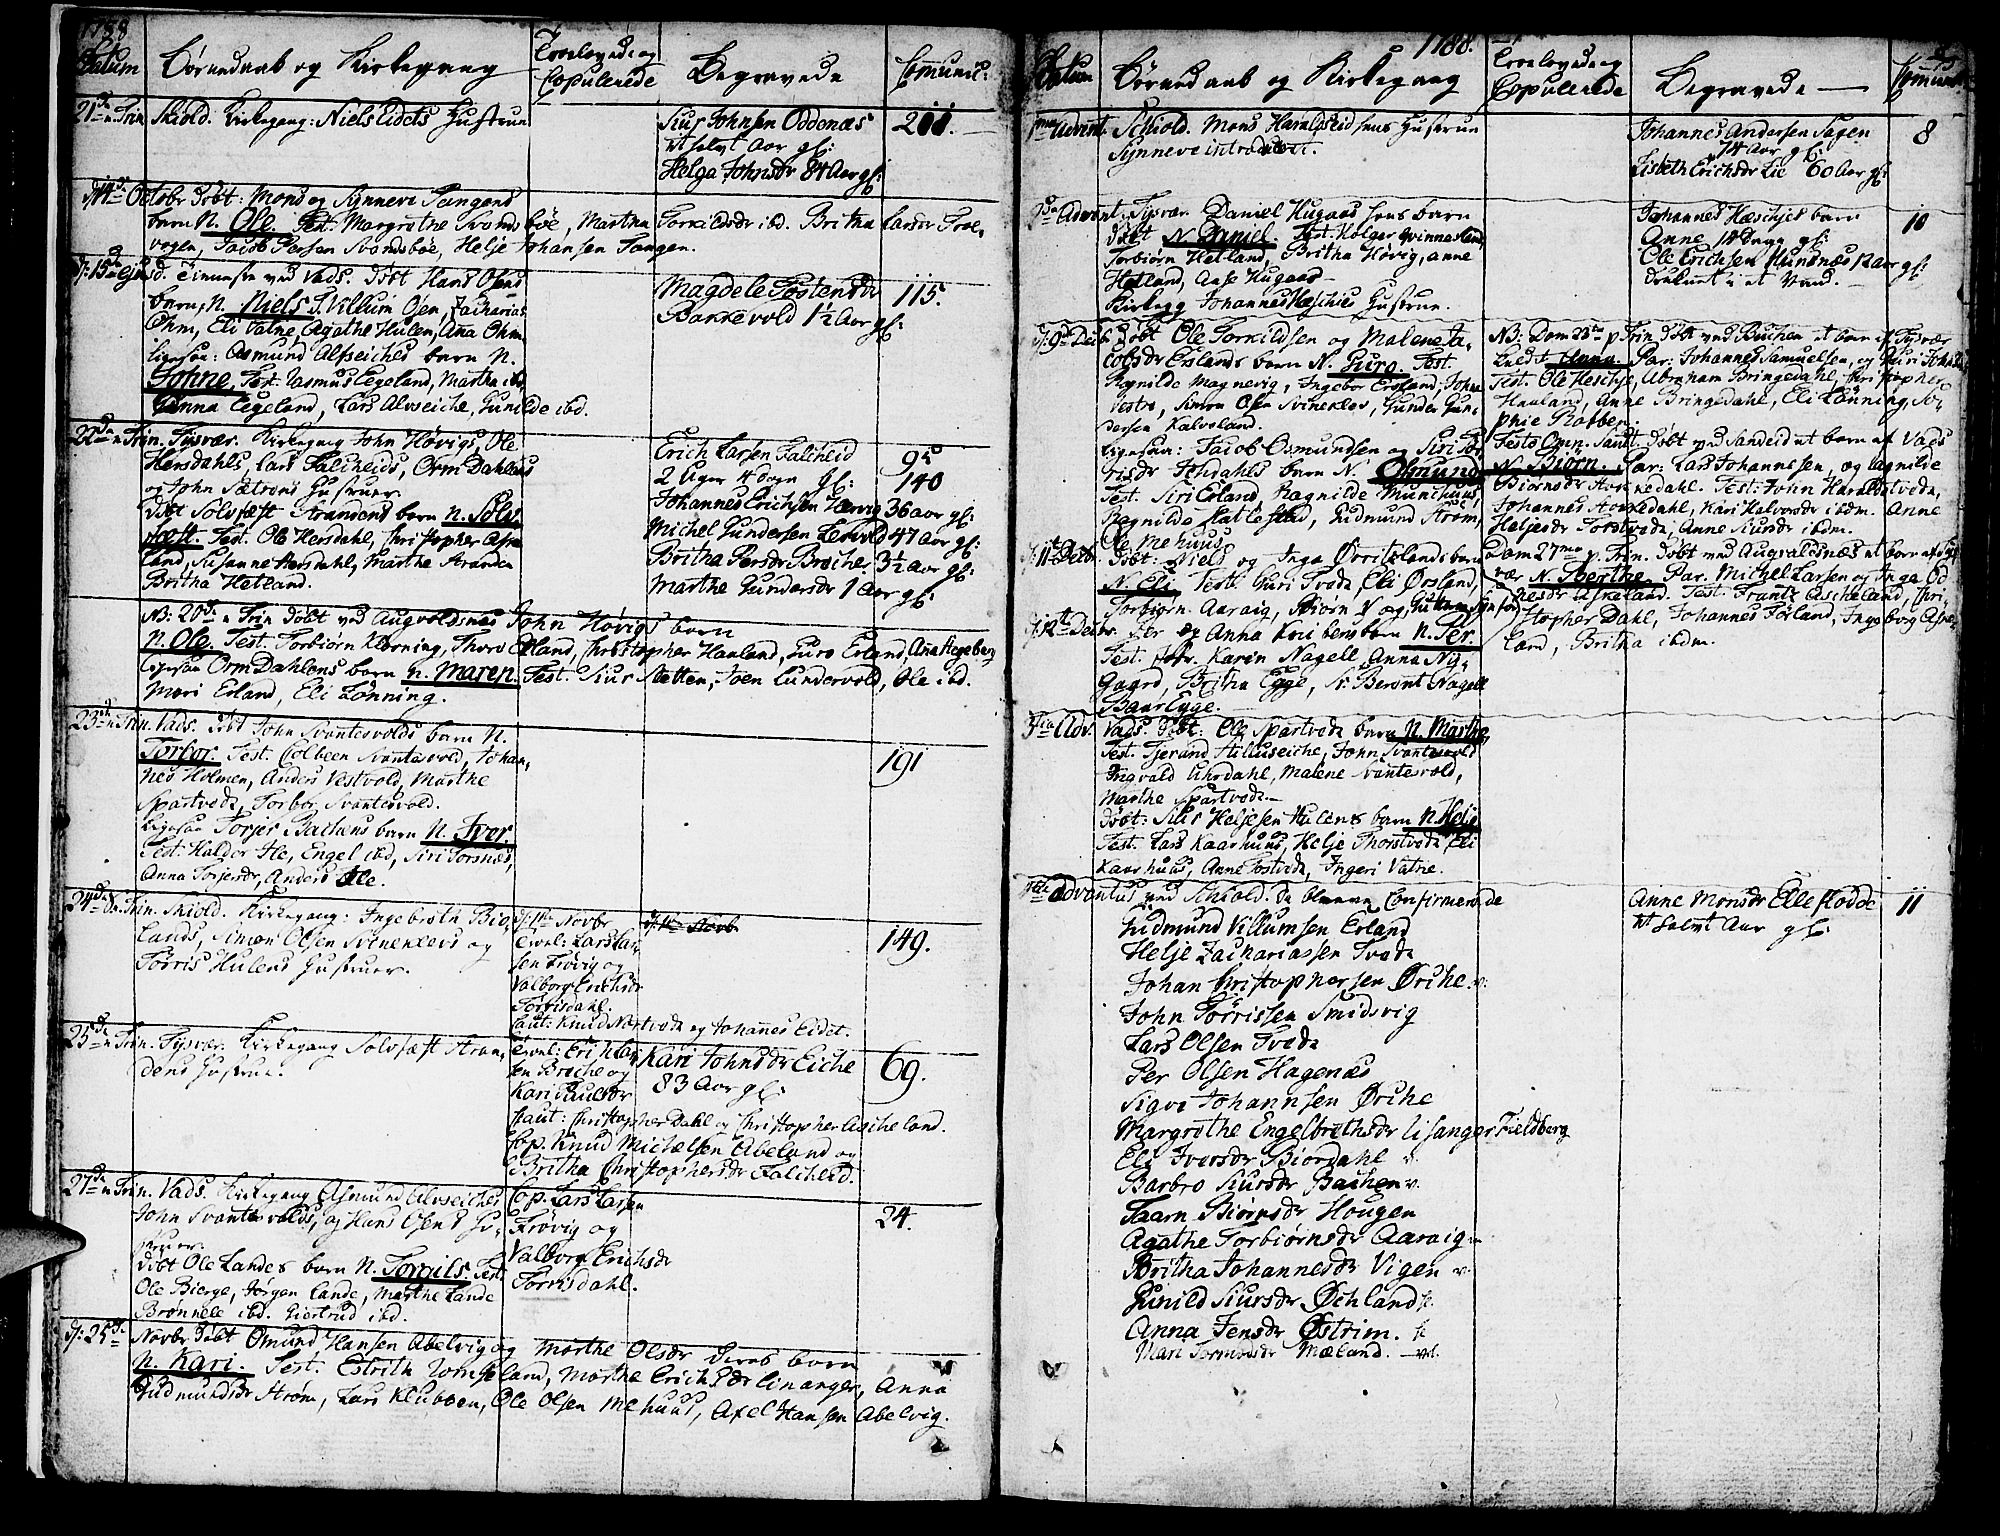 1788
Datum Børnedaab og Kirkegang Troelovede og Copulerede Begravede Communic:
21de n Trin Skiold. Kirkegang: Niels Eidets Hustrue
Siur Johnsen Oddenæs
et halvt Aar gl:
Helga Johnsdr 84 Aar gl:
211.
d: 14de Octobr Døbt: Mons og Synneve Tangens
barn N. Ole. Test. Margrethe Svendsbøe, Martha Torkildsdr ibd. Britha Larsdr Troe-
vogen, Jacob Persen Svandsbøe, Helje Johansen Tangen.
d: 15de Ejusd. Tieneste ved Vads. Døbt Hans Øsens
barn, N. Niels T. Villum Øsen, Zacharias
Ohm, Eli Vatne, Agathe Hulen, Ana Ohm.
Ligesaa: Asmund Alfseiches barn N.
Johne, Test. Rasmus Eegeland, Martha ibd,
Anna Eegeland, Lars Alvseiche, Gunilde ibd.
Magdele Tostensdr
Bakkevold 1½ Aar gl:
115.
22de n Trin. Tysvær. Kirkegang John Høvigs, Ole
Hersdahls, Lars Falcheids, Orm Dahlens
og John Sætrens Hustruer.
Døbt Solvfæst Strandens barn N. Solv-
fæst. Test. Ole Hersdahl, Christopher Asche-
land, Susanne Hersdahl, Marthe Stranden
Britha Hetland.
Erich Larsen Falcheid
2 Uger 4 dage gl:
Johannes Erichsen Værvig 36 aar gl:
Michel Gundersen Lervold 47 Aar gl:
Britha Persdr Brøche 3½ aar gl:
Marthe Gundersdr 1 Aar gl:
95
140
NB: 20de n Trin døbt ved Augvoldsnæs John Høvigs barn
N. Ole. Test. Torbiørn Kløvning, Thore Erland, Christopher Haaland, Guro Erland, Ana Hegeberg
Ligesaa Orm Dahlens barn N. Maren. Test. Siur Sletten, Joen Lundervold, Ole ibd.
Mari Erland, Eli Lønning.
23de n Trin. Vads. Døbt John Svantesvolds barn N.
Torbor. Test. Colbeen Svantesvold, Johan-
nes Holmen, Anders Vestvold, Marthe
Spartvede, Torbor Svantesvold.
Ligesaa Torjer Bachens barn N. Iver.
Test: Haldor Ile, Engel ibd, Siri Torsnæs,
Anna Torjersdr, Anders Ile.
191
24de n Trin. Skiold. Kirkegang: Ingebrein Biø-
lands, Simon Olsen Svineklevs og
Torris Hulens Hustruer.
d: 14de Novbr
Trol: Lars Lar-
sen Frøvig og
Valborg Erichsdr
Torrisdahl.
Caut: Knud Nortvede og Johannes Eidet.
149.
25de n Trin. Tysvær. Kirkegang Solvfæst Stran-
dens Hustrue.
Trol: Erich Lar-
sen Brøche og
Kari Paulsdr
Caut: Christopher Dahl og Christopher Ascheland.
Cop. Knud Michelsen Abeland og
Britha Christophersdr Falcheid.
Kari Johnsdr Eiche
83 Aar gl:
69.
27de n Trin. Vads. Kirkegang Asmund Alvseiches
John Svantesvolds, og Hans Øsens Hu-
struer.
Døbt Ole Landes barn N. Torgils. Test.
Ole Bierge, Jørgen Lande, Marthe Lande
Brønnele ibd. Giertrud ibd.
Cop. Lars Larsen
Frøvig og
Valborg Erichsdr
Torrisdahl.
24.
d: 25de Novbr Døbt Omund Hansen Abelvig og Marthe Olsdr deres barn
N. Kari. Test. Estrith Romseland, Marthe Erichsdr Linanger, Anna
Gudmundsdr Strøm, Lars Klubben, Ole Olsen Mehuus, Axel Hansen Abelvig.
1788.
Datum Børnedaab og Kirkegang Troelovede og Copulerede Begravede Communic
1ma Advent. Schiold. Mons Haraldseid hans Hustrue
Synneve introduceret.
Johannes Andersen Sagen
74 Aar gl:
Lisbeth Erichsdr Lie 60 Aar gl:
8
2da Advent. Tysvær. Daniel Hugaas hans barn
døbt N. Daniel. Test. Holger Qvinnesland,
Torbiørn Hetland, Britha Høvig, Anne
Hetland, Aase Hugaas
Kirkegg Johannes Hæschies Hustrue.
Johannes Hæschjes barn
Anne 14 Dage gl:
Ole Erichsen Hundnæs 12 aar gl:
Druknet i et Vand.
10
d: 9de Decbr Døbt Ole Torkildsen og Malene Ja-
cobsdr Erslands barn N. Guro. Test.
Ragnilde Magnevig, Ingebor Ersland, Johan
Vestre, Simon Olsen Svineklev, Gunder Gun-
dersen Kalveland.
Ligesaa: Jacob Osmundsen og Siri Tor-
risdr Johdahls barn N. Osmund
Test. Siri Erland, Ragnilde Munchuus,
Ragnilde Hatlestad, Gudmund Strøm,
Ole Mehuus
NB: Dom 23tia p Trin Døbt ved Buchen et barn af Tysvær
kaldt Anna. Par: Johannes Samuelsen, og Guri Johnsdr
Test. Ole Heschje, Abraham Bringedahl, Christopher
Haaland, Anne Bringedahl, Eli Lønning, So-
phie Rabben.
Festo Omn. Sanct. Døbt ved Sandeid et barn af Vads
N. Biørn. Par: Lars Johannessen, og Ragnilde
Biørnsdr Aorkedahl. Test: John Haraldstvede,
Johannes Aorkedahl, Kari Halvorsdr ibdm. Anne
Heljesdr Torstvede, Anne Siursdr ibdm.
d: 11te Decbr. Døbt: Niels og Inga Ørritslands barn
N. Eli Test. Guri Tvede, Eli Ørsland,
Torbiørn Aaraig, Biørn
Dom 27ma p. Trin. Døbt ved Augvaldsnæs et barn af Tys-
vær N. Berthe. Par. Michel Larsen og Inga Od-
nesdr Askeland. Test. Frantz Ascheland, Chri-
stopher Dahl, Johannes Førland, Ingeborg Asche-
land, Britha ibdm.
d: 12te Decbr. Per og Anna Knibens barn N. Per
Test. Jfr. Karen Nagell, Anna Ny-
gaard, Britha Egge, Sr. Berent Nagell
Baar Lyge.
3tia Adv. Vads. Døbt: Ole Spartvede barn N. Marthe
Test. Tjerand Alluseiche, John Svantesvold
Ingvald Uhrdahl, Malene Svantesvold,
Marthe Spartvede.
Døbt: Siur Heljesen Hulens barn N. Helje
Test. Lars Kaarhuus, Helje Thorstvede, Eli
Kaarhuus, Anne Tostvede, Ingeri Vatne.
4ta Adventus ved Schiold. Da bleve Confirmerede
Gudmund Villumsen Erland
Helje Zachariassen Tvede
Johan Christophersen Ørche v:
John Tørrissen Smidsvig
Lars Olsen Tvede
Per Olsen Hagenæs
Sigve Johannsen Ørche
Margrethe Engelbrethsdr Lisanger Fieldberg
Eli Iversdr Biordahl v.
Barbro Siursdr Bachen v.
Taarn Biørnsdr Hougen
Agathe Torbiørnsdr Aaraig
Britha Johannesdr Vigen v.
Gunild Siursdr Øchland
Anna Jensdr Østrim.
Mari Tormodsdr Mæland.
Anne Monsdr Elleflodde
et halvt Aar gl:
11